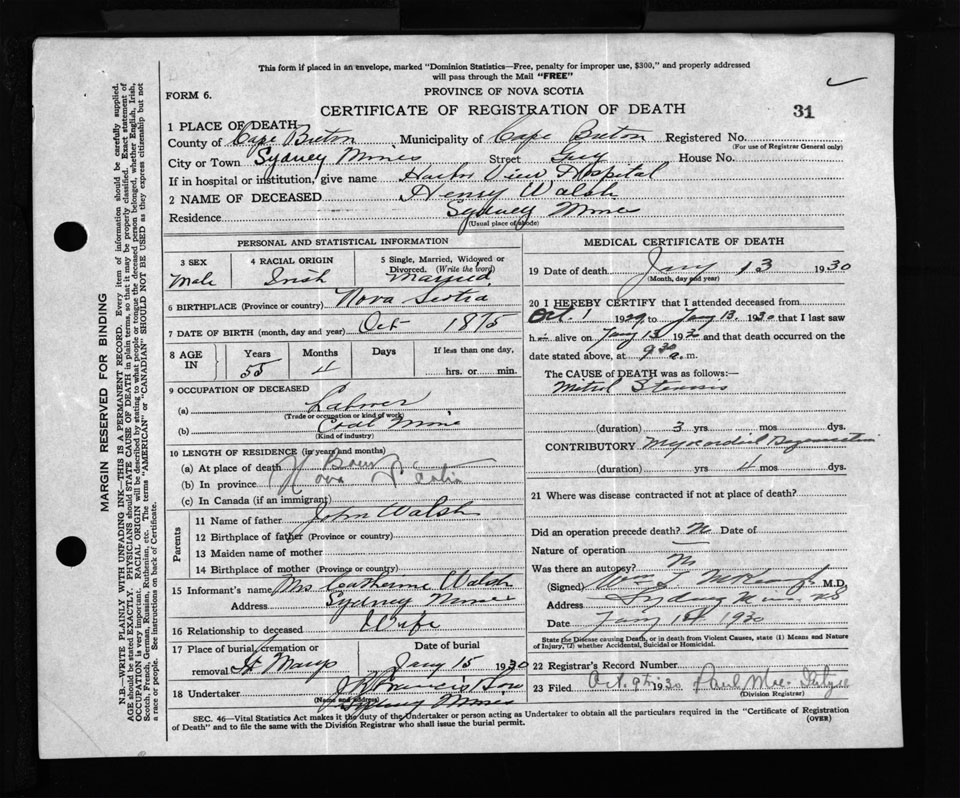 This form if placed in an envelope, marked "Dominion Statistics—Free, penalty for improper use, $300," and properly addressed
will pass through the Mail "FREE"
FORM 6.
PROVINCE OF NOVA SCOTIA
CERTIFICATE OF REGISTRATION OF DEATH
31
1 PLACE OF DEATH
County of Cape Breton Municipality of Cape Breton Registered No.
(For use of Registrar General only)
City or Town Sydney Mines Street House No.
If in hospital or institution, give name Harbor View Hospital
2 NAME OF DECEASED Henry Walsh
Residence Sydney Mines
(Usual place of abode)
PERSONAL AND STATISTICAL INFORMATION
3 SEX Male
4 RACIAL ORIGIN Irish
5 Single, Married, Widowed or Divorced. (Write the word) Married
6 BIRTHPLACE (Province or country) Nova Scotia
7 DATE OF BIRTH (month, day and year) Oct 1875
8 AGE IN Years 55 Months 4 Days If less than one day, hrs. or min.
9 OCCUPATION OF DECEASED
(a) Labourer
(Trade or occupation or kind of work)
(b) Coal Mine
(Kind of industry)
10 LENGTH OF RESIDENCE (in years and months)
(a) At place of death Born
(b) In province Nova Scotia
(c) In Canada (if an immigrant)
Parents
11 Name of father John Walsh
12 Birthplace of father (Province or country)
13 Maiden name of mother
14 Birthplace of mother (Province or country)
15 Informant's name Mrs Catherine Walsh
Address Sydney Mines
16 Relationship to deceased Wife
17 Place of burial, cremation or removal St Marys
Date of burial Jany 15 1930
18 Undertaker
(Name and address)
Sydney Mines
MEDICAL CERTIFICATE OF DEATH
19 Date of death Jany 13 1930
(Month, day and year)
20 I HEREBY CERTIFY that I attended deceased from
Oct 1 1929, to Jany 13, 1930 that I last saw
h alive on Jany 13 1930 and that death occurred on the
date stated above, at 9 30 a. m.
The CAUSE of DEATH was as follows:—
Mitral Stenosis
(duration) 3 yrs mos dys.
CONTRIBUTORY Myocardial Degeneration
(duration) yrs 4 mos dys.
21 Where was disease contracted if not at place of death?
Did an operation precede death? N Date of
Nature of operation
Was there an autopsy? N
(Signed) M.D.
Address Sydney Mines NS
Date Jany 14 1930
State the Disease causing Death, or in death from Violent Causes, state (1) Means and Nature of Injury, (2) whether Accidental, Suicidal or Homicidal.
22 Registrar's Record Number
23 Filed Oct. 9th 1930 Paul
(Division Registrar)
SEC. 46—Vital Statistics Act makes it the duty of the Undertaker or person acting as Undertaker to obtain all the particulars required in the "Certificate of Registration
of Death" and to file the same with the Division Registrar who shall issue the burial permit.
(OVER)
MARGIN RESERVED FOR BINDING
N.B.—WRITE PLAINLY WITH UNFADING INK—THIS IS A PERMANENT RECORD. Every item of information should be carefully supplied.
AGE should be stated EXACTLY. PHYSICIANS should STATE CAUSE OF DEATH in plain terms, so that it may be properly classified. Exact statement of
OCCUPATION is very important. RACIAL ORIGIN will be described by stating to what people or tongue the deceased person belonged, whether English, Irish,
Scotch, French, German, Russian, Ruthenian, etc. The terms "AMERICAN" or "CANADIAN" SHOULD NOT BE USED as they express citizenship but not
a race or people. See instructions on back of Certificate.